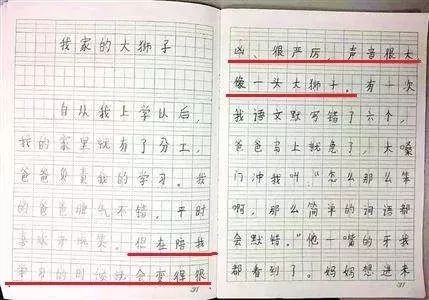 我家的大狮子
自从我上学以后，
我的家里就有了分工，
爸爸负责我的学习。我
的爸爸脾气不错，平时
喜欢开玩笑。但在陪我
学习的时候就会变得很
31
凶、很严厉，声音很大
像一头大狮子。有一次
我语文默写错了六个，
爸爸马上就急了，大嗓
门冲我叫：“怎么那么笨
啊，那么简单的词语都
会默错。”他一嘴的牙我
都看到了。妈妈想进来
31